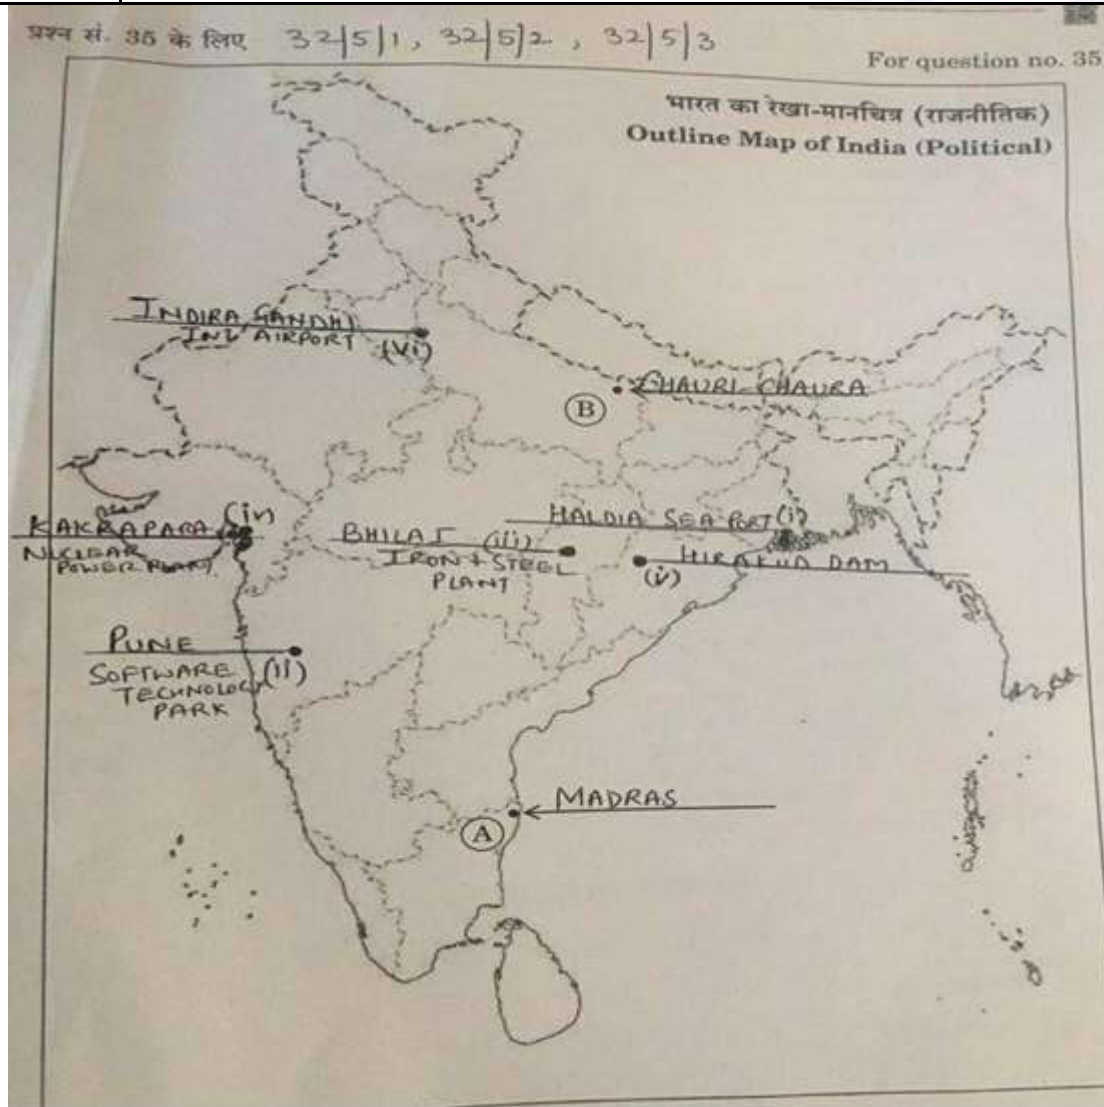 प्रश्न सं. 35 के लिए 32/5/1, 32/5/2, 32/5/3
For question no. 35
भारत का रेखा-मानचित्र (राजनीतिक)
Outline Map of India (Political)
INDIRA GANDHI
INL AIRPORT (vi)
CHAURI-CHAURA
B
KAKRAPARA (iv)
NUCLEAR
POWER PLANT
HALDIA SEA PORT (i)
BHILAI (iii)
IRON + STEEL
PLANT
HIRAKUD DAM
(v)
PUNE
SOFTWARE (ii)
TECHNOLOGY
PARK
MADRAS
A